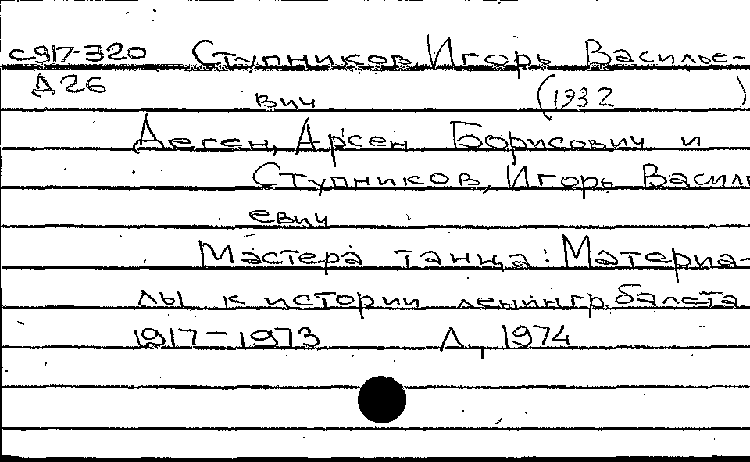 с917-320 Ступников, Игорь Василье-
Д26 вич (1932 )
Деген, Арсен Борисович и
Ступников, Игорь Василь
евич
Мастера танца: Материа-
лы к истории ленингр. балета
1917-1973 Л, 1974